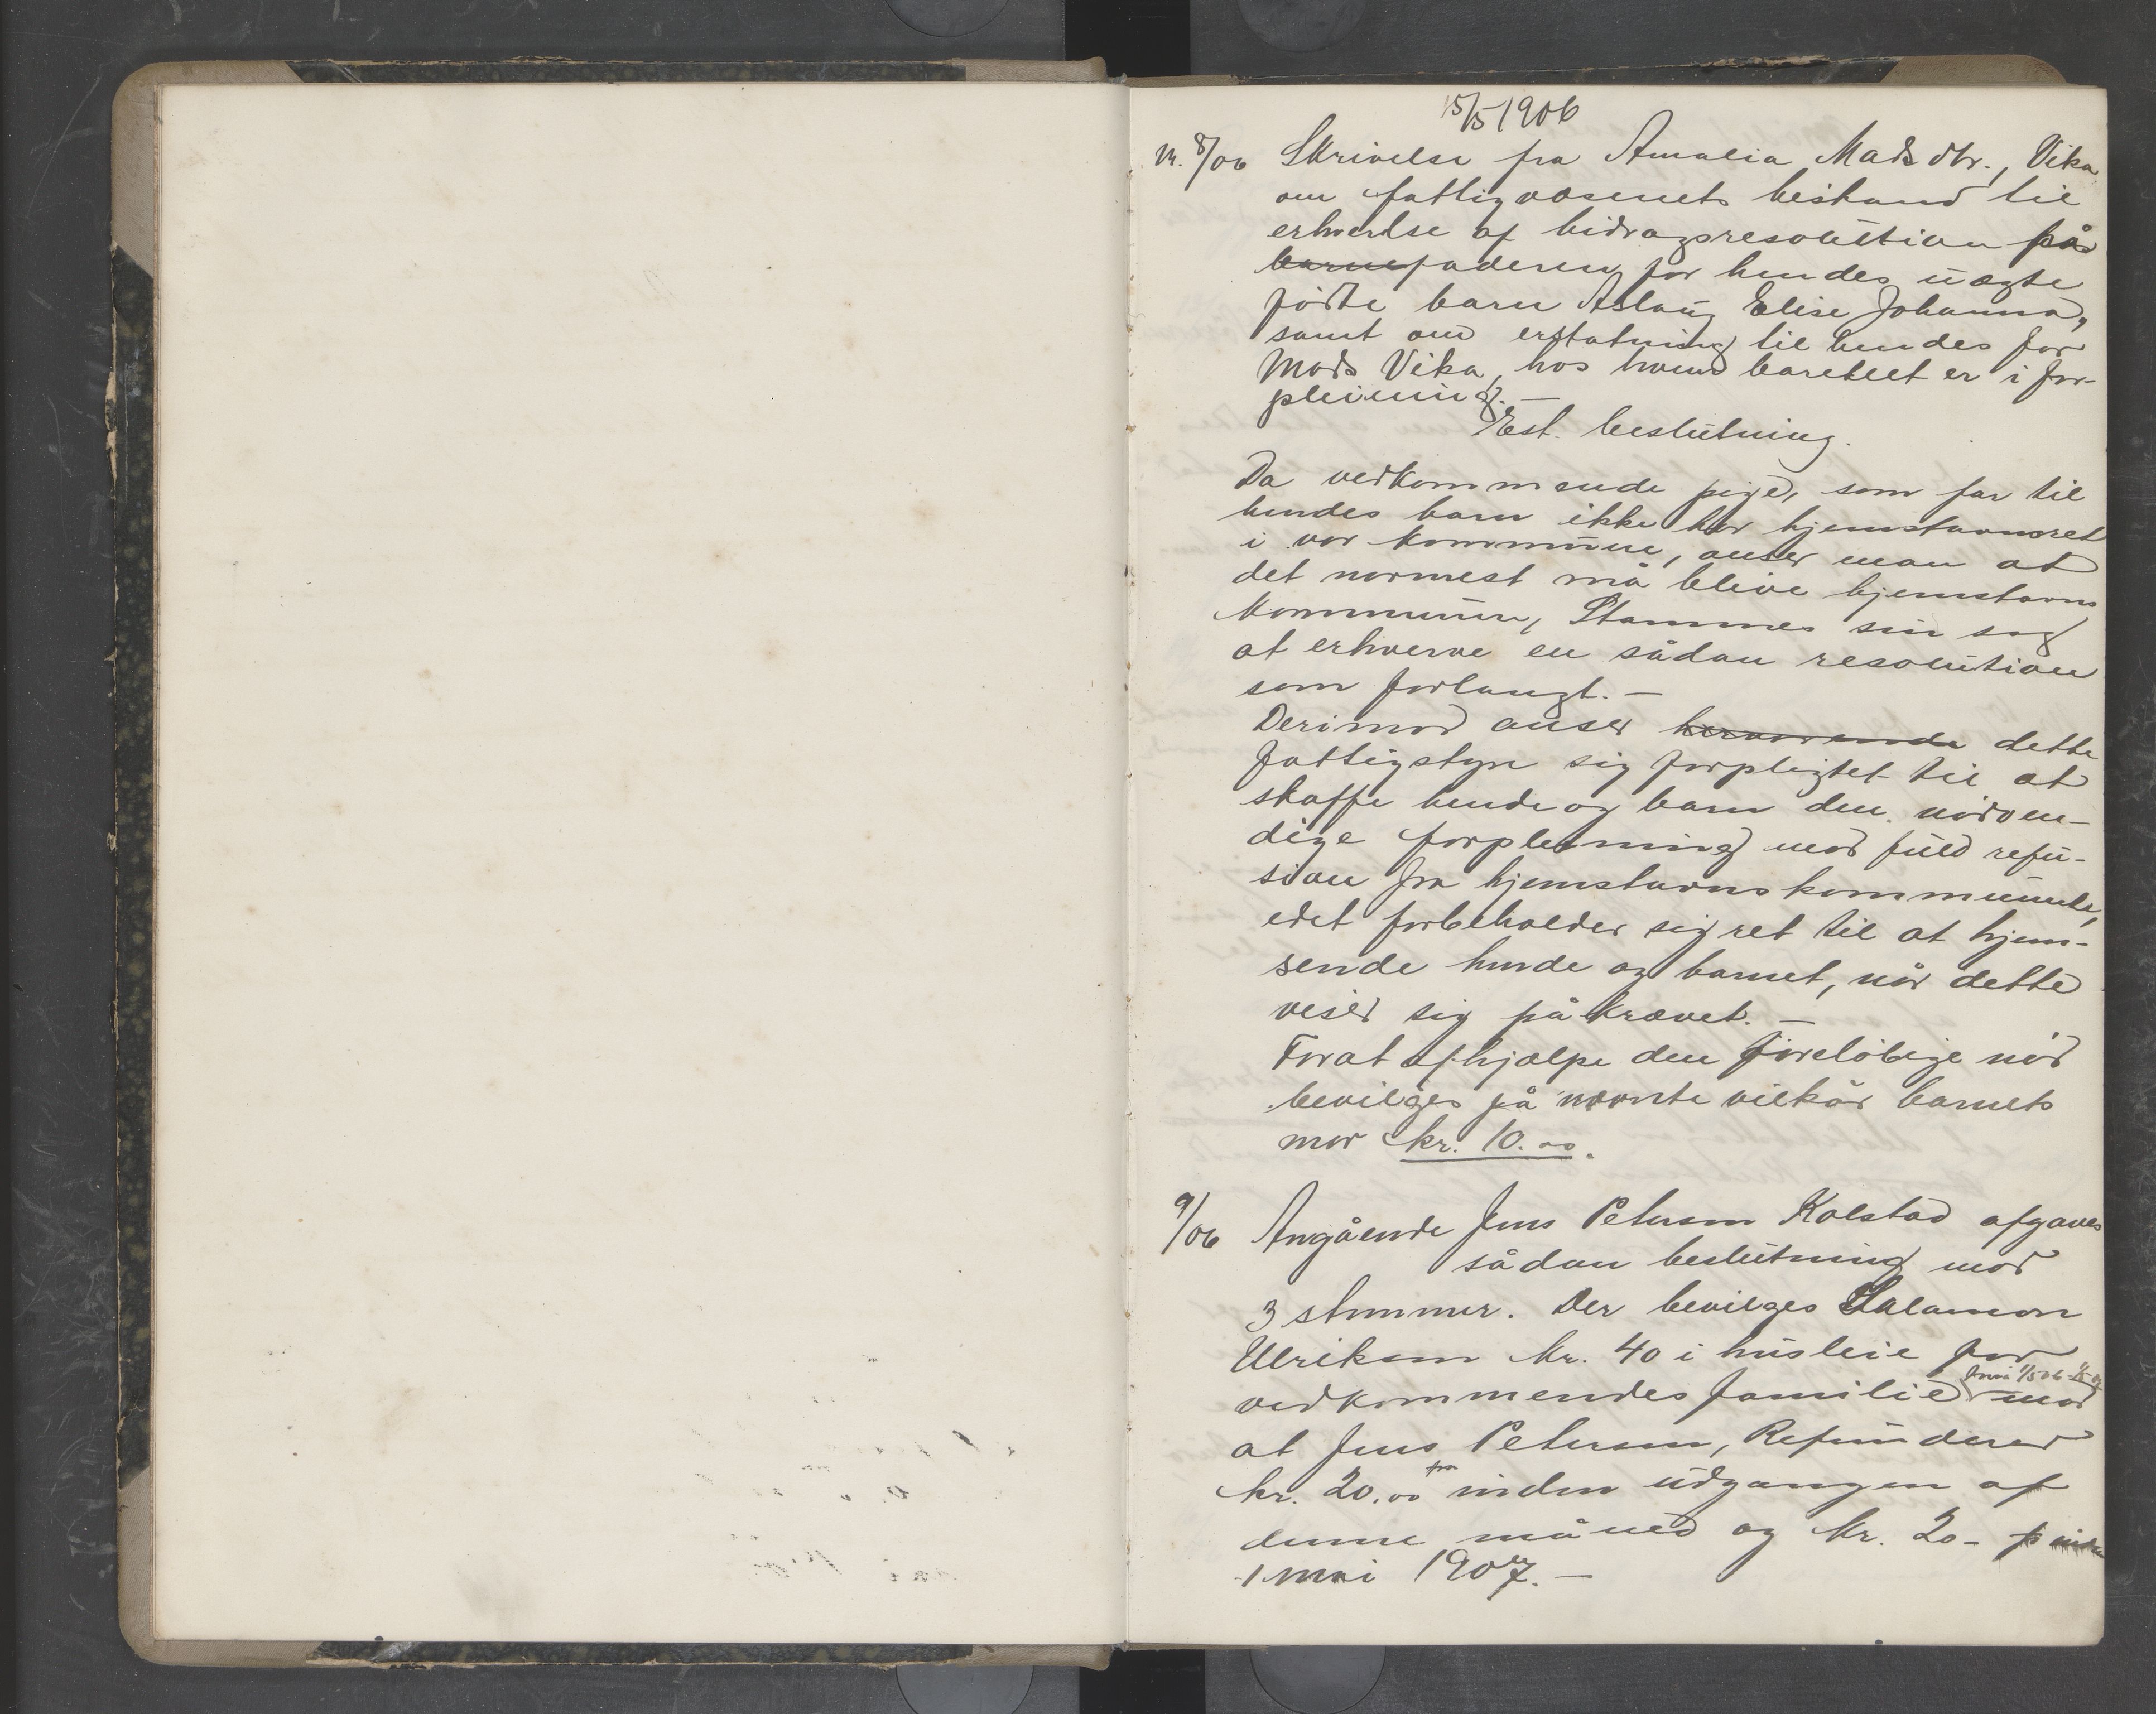 15/5 1906
Nr. 8/06 Skrivelse fra Amalia Madsdtr., Vika
om fattigvæsenets bistand til
erhvelse af bidragsresolution på
barnefaderen for hendes uægte
fødte barn Aslaug Elise Johanna,
samt om erstatning til hendes far
Mads Vika, hos hvem barnet er i for-
pleining. —
Est. beslutning.
Da vedkommende pige, som far til
hendes barn ikke har hjemstavnsret
i vor kommune, anser man at
det nærmest må blive hjemstavns
kommunen, Stamnes sin sag
at erhverve en sådan resolution
som forlangt. —
Derimod anser herværende dette
fattigstyre sig forpligtet til at
skaffe hende og barn den nødven-
dige forpleining mod fuld refu-
sion fra hjemstavnskommunen,
idet forbeholder sig ret til at hjem-
sende hende og barnet, når dette
viser sig påkrævet. —
Forat afhjælpe den foreløbige nød
bevilges på nævnte vilkår barnets
mor kr. 10.00.
9/06 Angående Jens Petersen Kolstad afgaves
sådan beslutning mod
3 stemmer. Der bevilges Salamon
Ulriksen kr. 40 i husleie for
vedkommendes familie fra 1/5 06 mod
at Jens Petersen, Refunderer
kr. 20.00 inden udgangen af
denne måned og kr. 20-
1 mai 1907. —